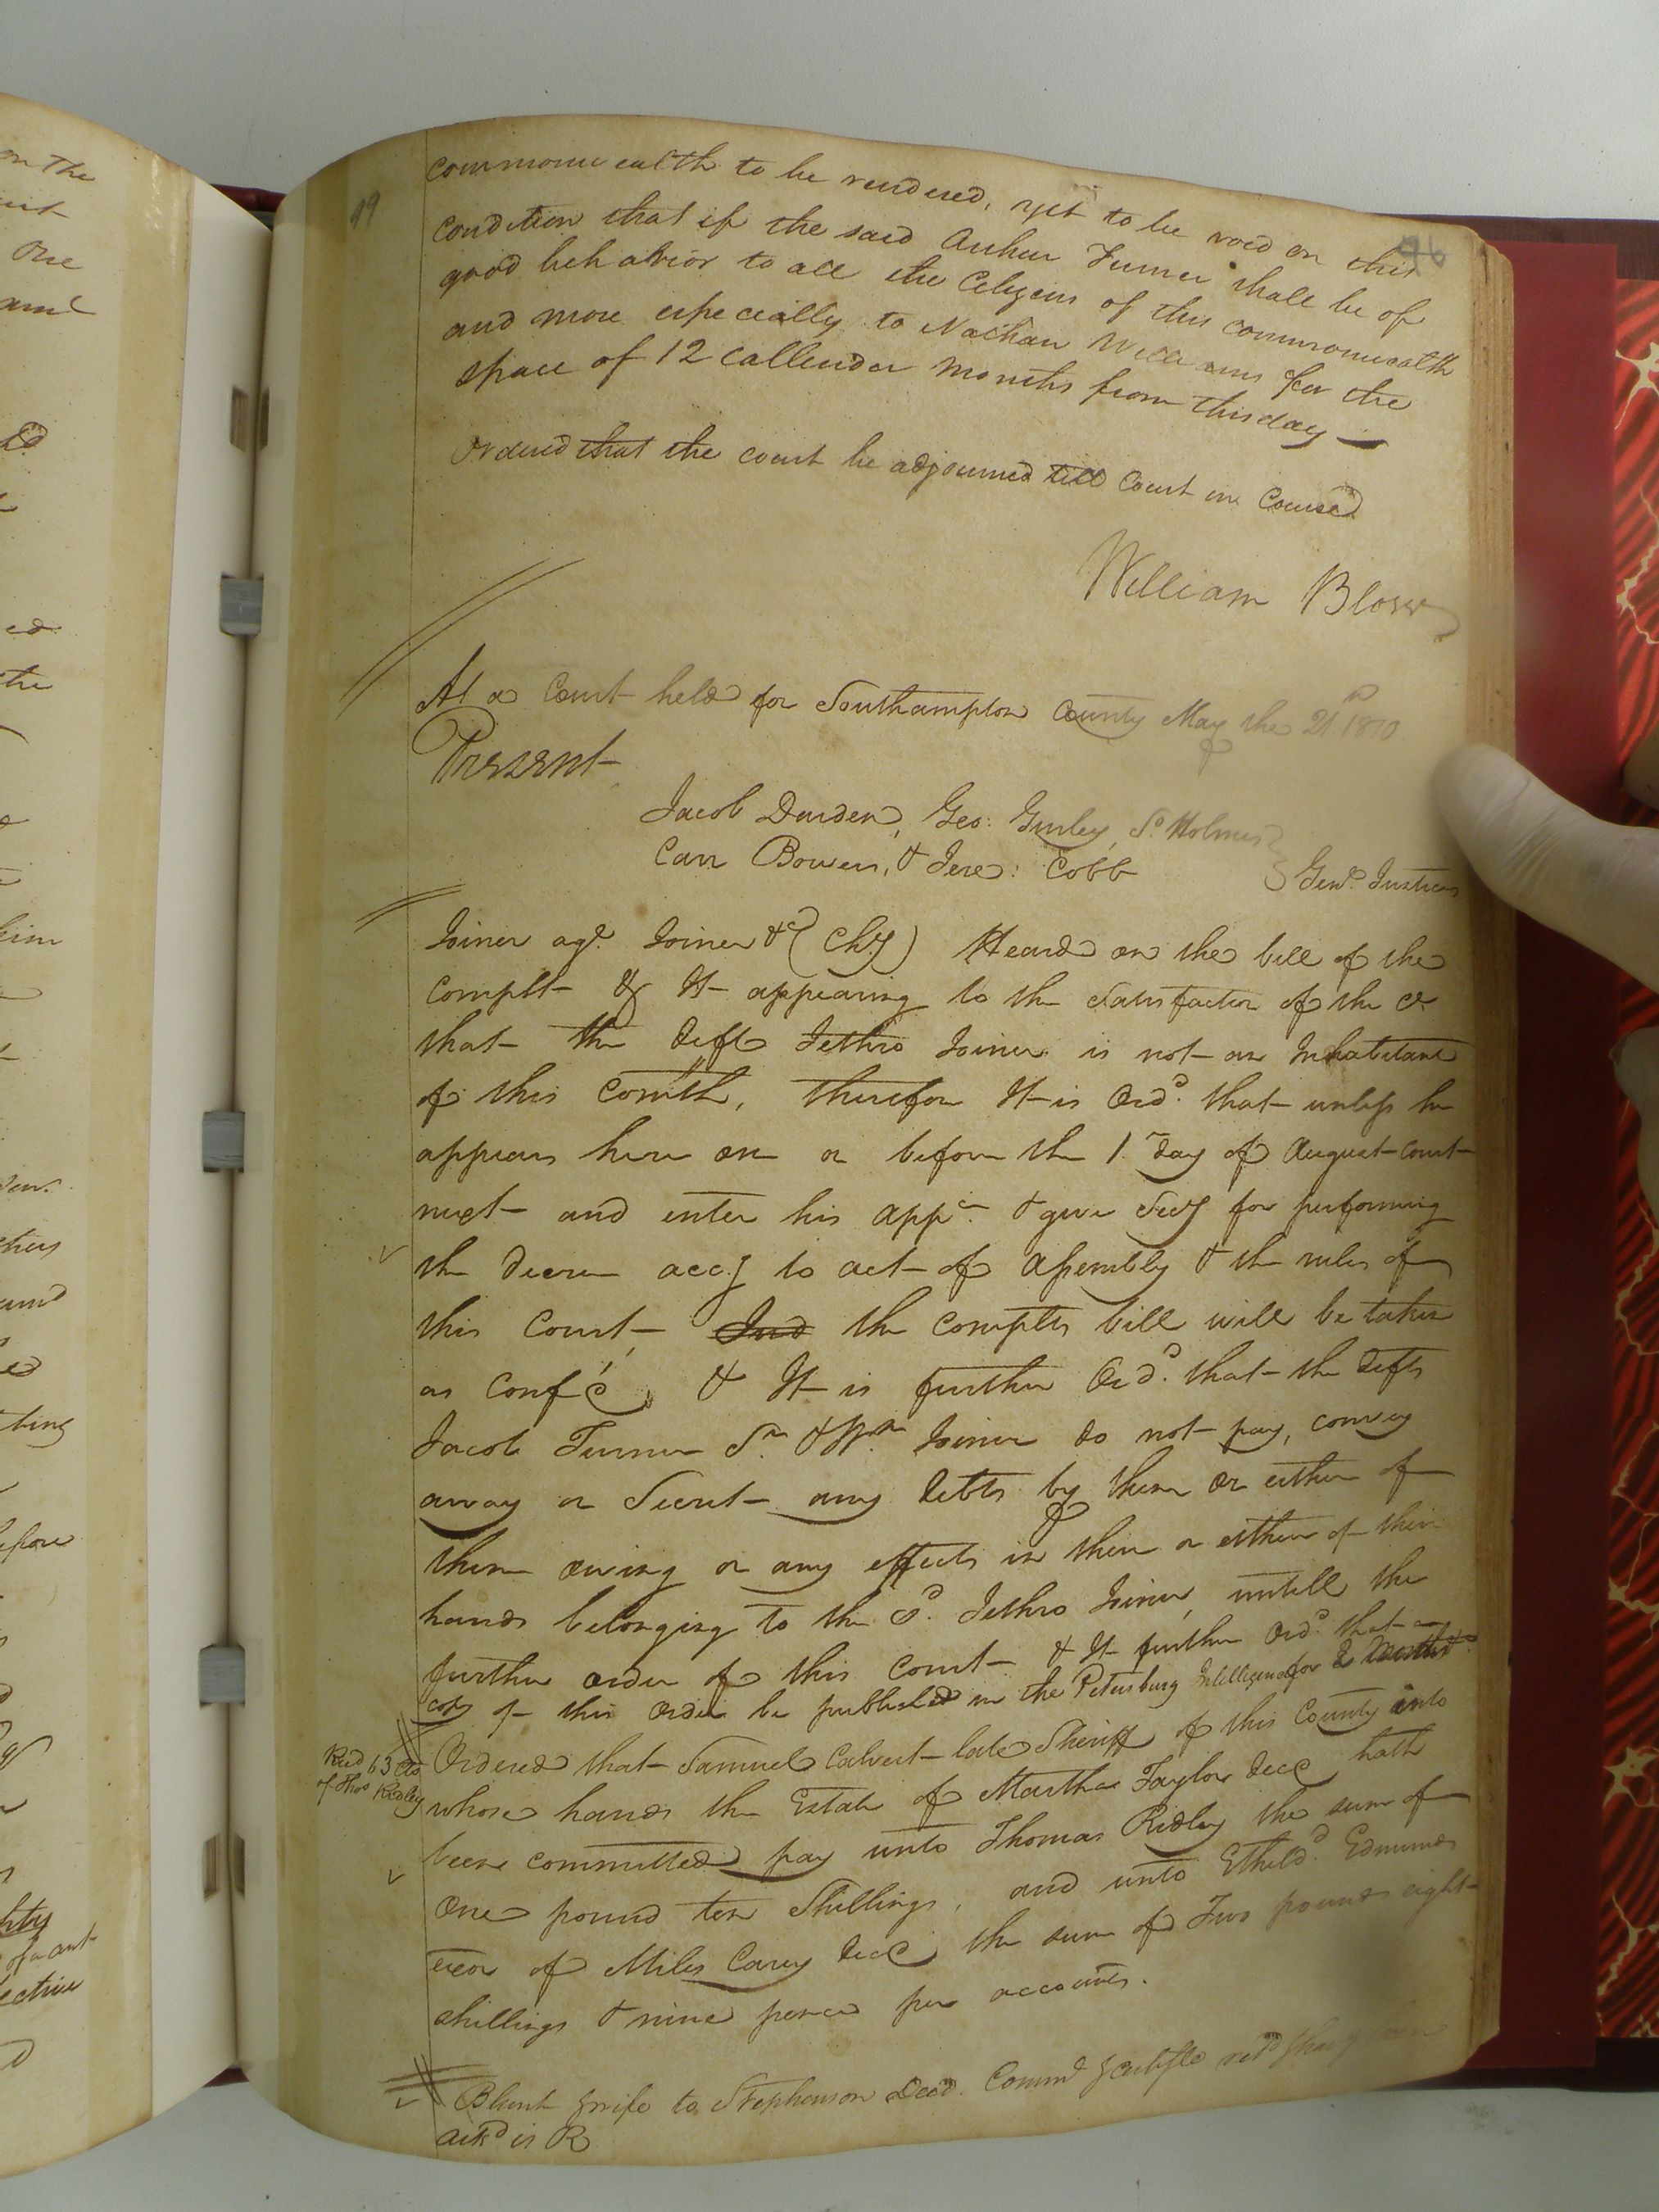 49
46
commonwealth to be rendered, yet to be void on this
condition that if the said Arthur Turner shall be of
good behavior to all the Citizens of this commonwealth
and more especially to Nathan Williams for the
space of 12 Callender months from this day —
Ordered that the court be adjourned till Court in Course
William Blow
At a Court held for Southampton County May the 21st 1810
Present
Jacob Darden, Geo: Gurley, Sn Holmes
Carr Bowers, & Jere: Cobb
Gent. Justices
Joiner agt. Joiner &c (Chy) Heard on the bill of the
Complt & It appearing to the Satisfaction of the Ct
that the deft Jethro Joiner is not an Inhabitant
of this Comth, therefore It is Ord. that unless he
appears here on or before the 1st day of August Court
next and enter his appce & give Secy for performing
the decree accg to act of Assembly & the rules of
this Court, And the complts bill will be taken
as Conf'd, & It is further Ord. that the defts
Jacob Turner Sr & Wm Joiner do not pay, convey
away or Secret any debts by them or either of
them owing or any effects in them or either of their
hands belonging to the Sd. Jethro Joiner, untill the
further order of this Court & It further Ord. that a
coy of this Order be published in the Petersburg Intelligencer for 2 Months
Ordered that Samuel Calvert late Sheriff of this County into
Recd 63 Cts
of Thos Ridley
whose hands the Estate of Martha Taylor decd hath
been committed pay unto Thomas Ridley the sum of
One pound ten Shillings, and unto Etheld. Edmunds
exor of Miles Cary decd the sum of Two pounds eight
shillings & nine pence per accounts.
Blunt & wife to Stephenson Deed. Comn & Certife retd
ackd is R